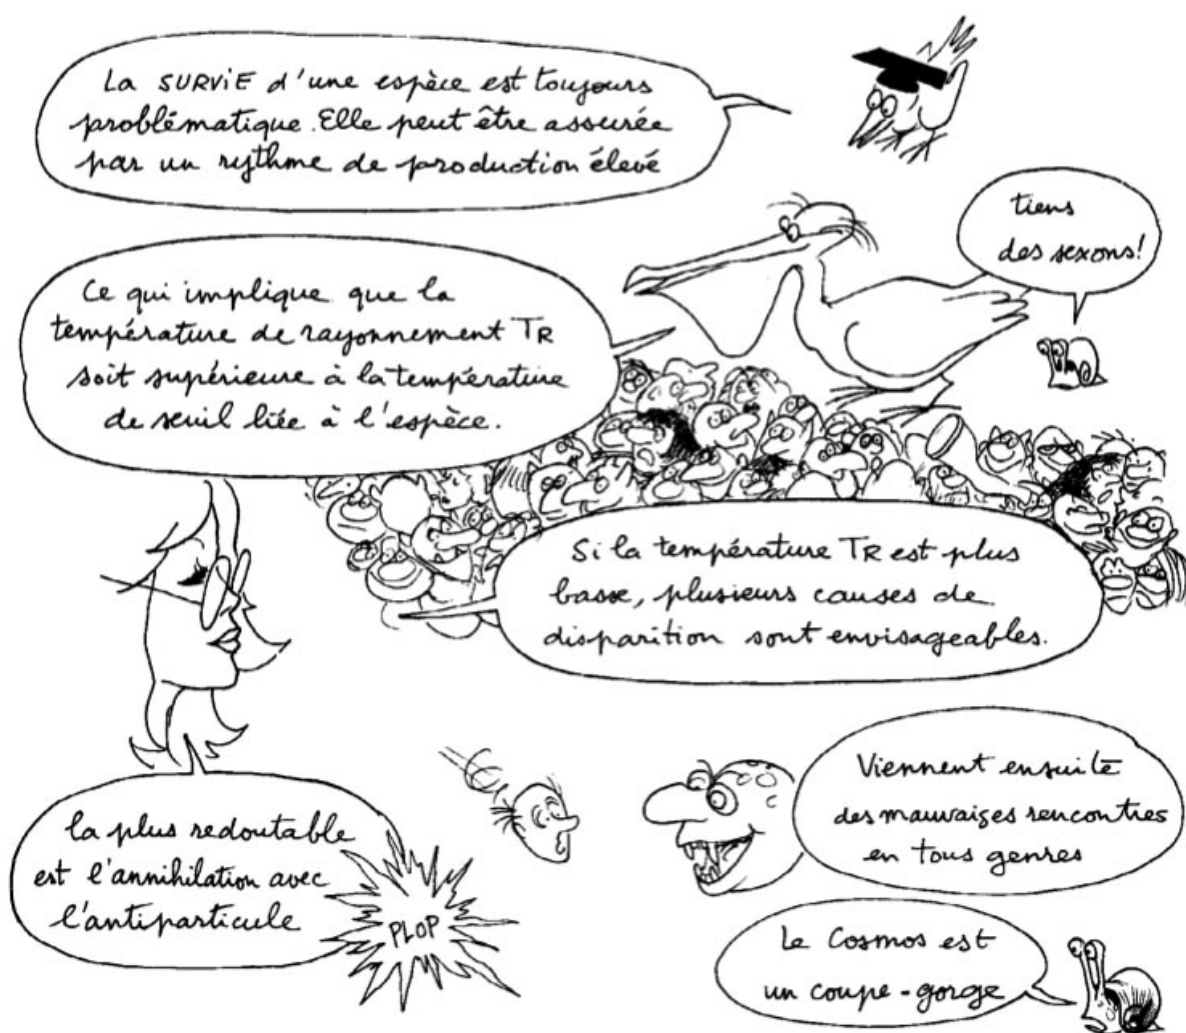 La SURVIE d'une espèce est toujours
problématique. Elle peut être assurée
par un rythme de production élevé
tiens
des sexons!
Ce qui implique que la
température de rayonnement TR
soit supérieure à la température
de seuil liée à l'espèce.
Si la température TR est plus
basse, plusieurs causes de
disparition sont envisageables.
la plus redoutable
est l'annihilation avec
l'antiparticule
PLOP
Viennent ensuite
des mauvaises rencontres
en tous genres
Le Cosmos est
un coupe-gorge